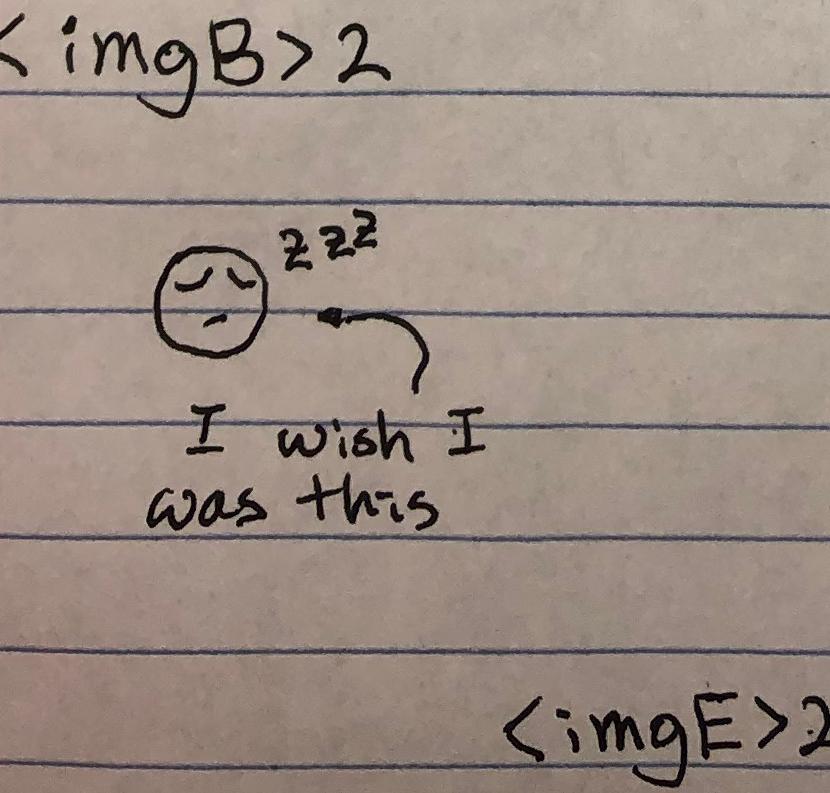 <imgB>2
zzz
I wish I
was this
<imgE>2